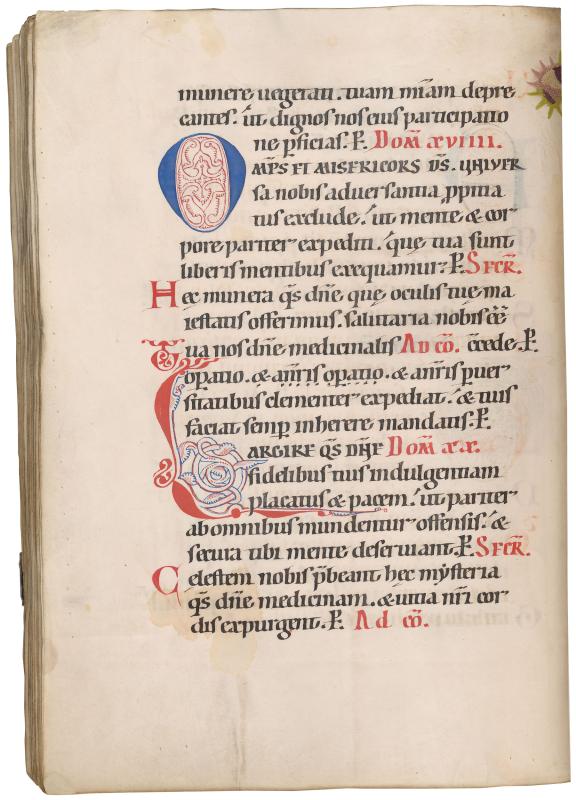 munere uegetati. tuam mīam depre
cantes. ut dignos nos eius participatio
ne ꝑficias. P̄. Dom̄ xviiii.
OMP̄S ET MISERICORS D̄S. UNIVER
sa nobis aduersantia ꝓpitia
tus exclude. ut mente & cor
pore pariter expediti. que tua sunt
liberis mentibus exequamur. P̄. S ECR̄.
Hec munera q̄s dn̄e que oculis tue ma
iestatis offerimus. salutaria nobis eē
Tua nos dn̄e medicinalis AD CŌ. c̄cede. P̄.
opatio. & an̄ris opatio. & an̄ris puer
sitatibus clementer expediat. & tuis
faciat semp̄ inherere mandatis. P̄.
LARGIRE Q̄S DN̄E Dom̄ xx.
fidelibus tuis indulgentiam
placatus & pacem. ut pariter
ab omnibus mundentur offensis. &
secura tibi mente deseruiant. P̄. SECR̄.
Celestem nobis p̄beant hec mysteria
q̄s dn̄e medicinam. & uitia nr̄i cor
dis expurgent. P̄. Ad cō.